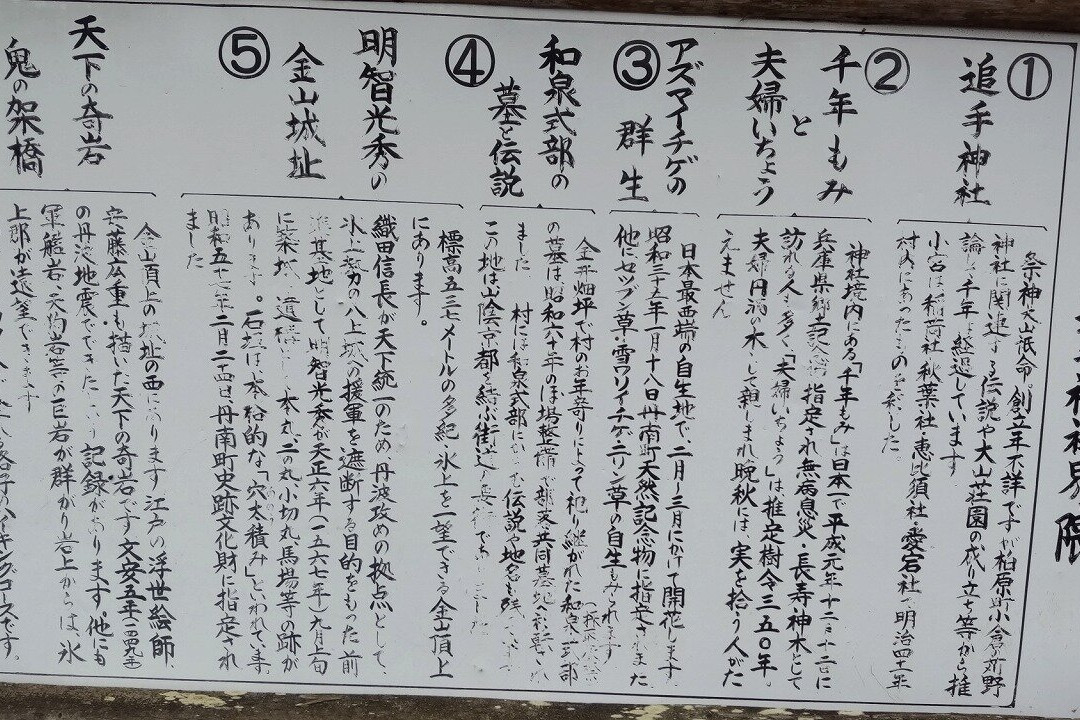 ①
追手神社
祭神大山祇命。創立年不詳ですが柏原町小倉新野
神社に関連する伝説や大山荘園の成り立ち等から推
論し千年は経過しています
小宮は稲荷社・秋葉社・恵比須社・愛宕社で明治四十年
村内にあったものを移した。
②
千年もみ
と
夫婦いちょう
神社境内にある「千年もみ」は日本一で平成元年十二月十二日に
兵庫県郷土記念 指定され無病息災・長寿神木として
訪れる人も多く「夫婦いちょう」は推定樹令三五〇年。
夫婦円満の木として親しまれ晩秋には、実を拾う人がた
えません
③
アズマイチゲの
群生
日本最西端の自生地で、二月〜三月にかけて開花します
昭和三十五年一月十八日丹南町天然記念物に指定されまた
他にセツブン草・雪ワリイチゲ・ニリン草の自生もみられます
④
和泉式部の
墓と伝説
金井畑坪で村のお年寄りによって祀り継がれた和泉式部
の墓は昭和六十年のほ場整備で部落共同墓地へ
ました 村には和泉式部に 伝説や地名も残
この地は山陰京都を結ぶ街道
⑤
明智光秀の
金山城址
標高五三七メートルの多紀・氷上を一望できる金山頂上
にあります。
織田信長が天下統一のため丹波攻めの拠点として、
氷上勢力の八上城への援軍を遮断する目的をもった前
進基地として明智光秀が天正六年(一五六七年)九月上旬
に築城 遺構 本丸、二の丸小切丸、馬場等の跡が
あります。石垣は本格的な「穴太積み」といわれています。
昭和五十七年二月二十四日、丹南町史跡文化財に指定され
ました
天下の奇岩
鬼の架橋
金山頂上の城址の西にあります 江戸の浮世絵師、
安藤広重も描いた天下の奇岩です文安五年(一四四九年)
の丹波地震でできた 記録があります。他にも
軍艦岩・天狗岩等の巨岩が群がり岩上からは、氷
上郡が遠望できます
のハイキングコースです。